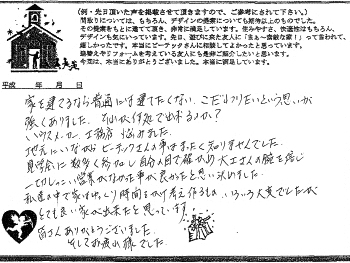 (例・先日頂いた声を掲載させて頂きますので、ご参考にされて下さい。)
間取りについては、もちろん、デザインの提案についても期待以上のものでした。
その提案をもとに建てて頂き、非常に満足しています。住みやすさ、快適性はもちろん、
デザインも気にいっています。先日、遊びに来た友人に「まぁ～素敵な家!」って言われて、
嬉しかったです。本当にビーテックさんに相談してよかったと思っています。
新築やリフォームを考えている友人にも是非ご紹介したいと思います。
今回は、本当にありがとうございました。本当に満足しています。
平成 年 月 日
家を建てるなら普通には建てたくない。こだわりたいという思いが
強くありました。それが何処で出来るのか?
ハウスメーカー、工務店 悩みました。
地元にいながらビーテックさんの事はまったく知りませんでした。
見学会に数多く参加し自分の目で確かめ大工さんの腕を信じ
しつこい営業がなかった事が良かったと思い決めました。
私達の中で家はじっくり時間をかけ考え作るもの いろいろ大変でしたが
とても良い家が出来たと思っています。
皆さんありがとうございました。
そしてお疲れ様でした。